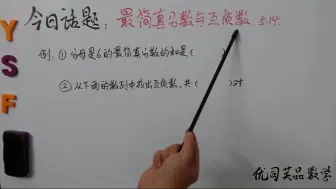 今日话题：最简真分数与互质数 5.14.
Y
S
F
例：① 分母是6的最简真分数的和是（ ）
② 从下面的数列中找出互质数，共（ ）对
优司英品数学